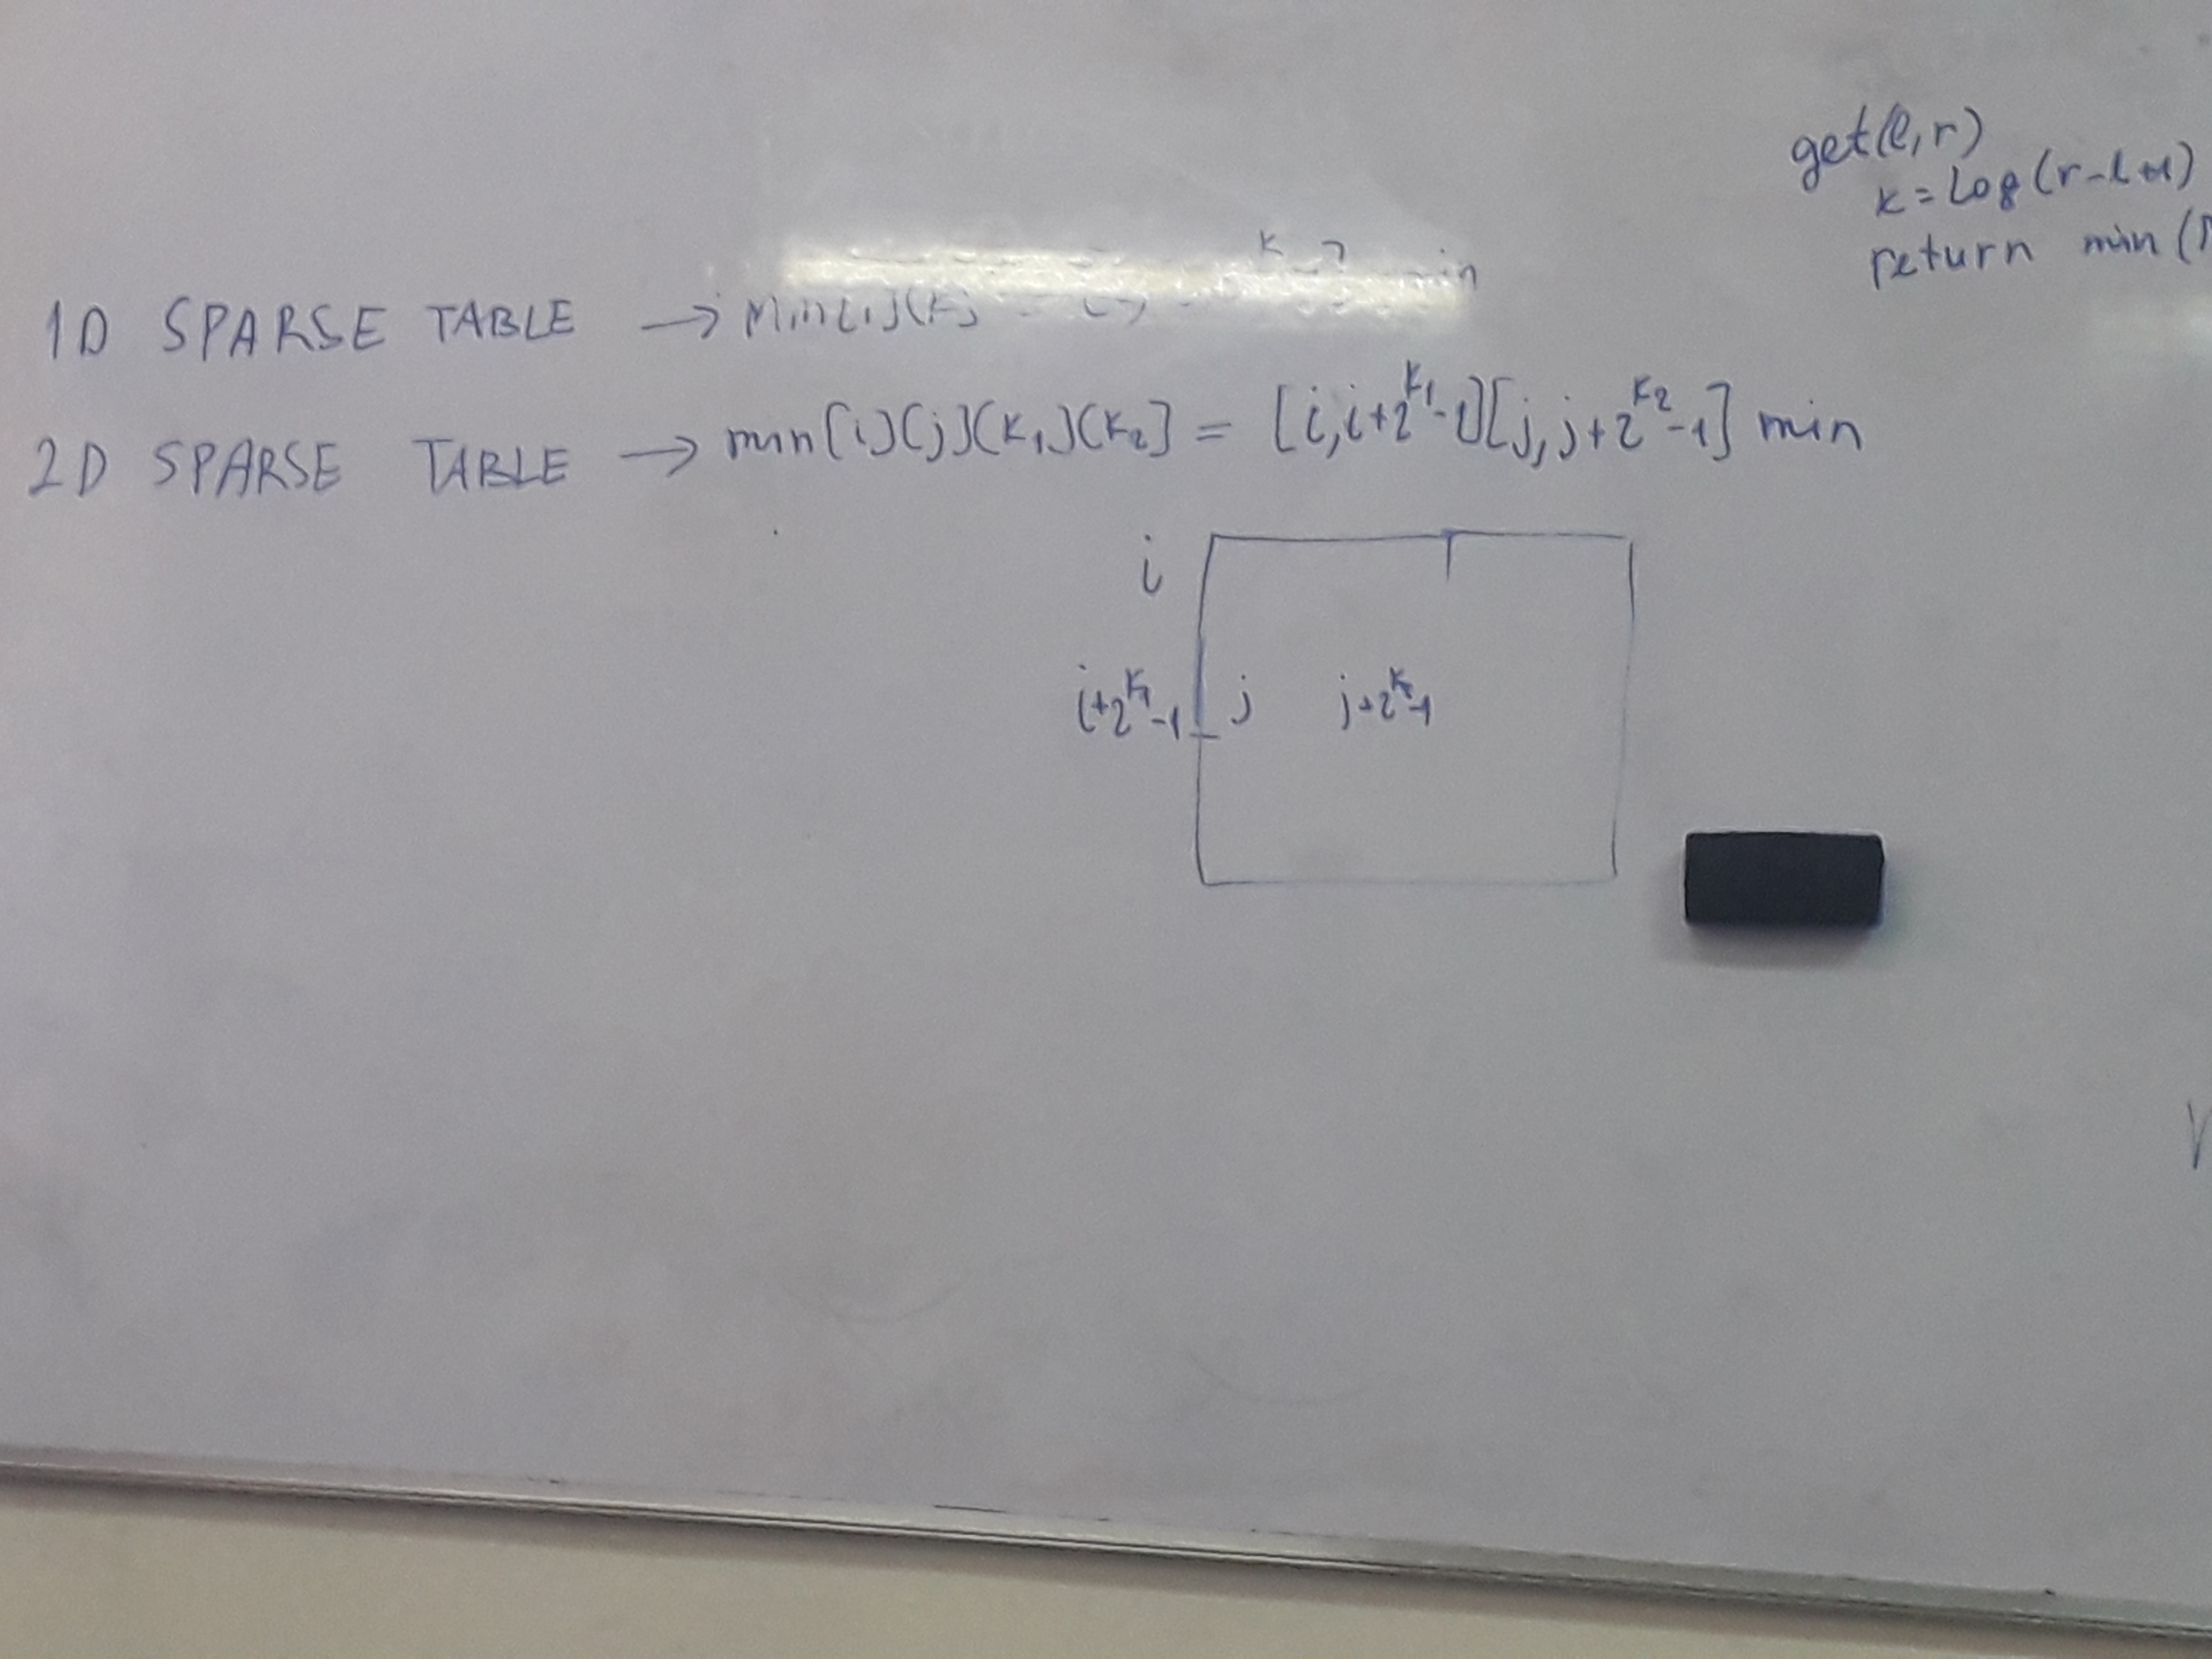 get(l,r)
k = log(r-l+1)
return min(
1D SPARSE TABLE → min[i][k]
min
2D SPARSE TABLE → min[i][j][k₁][k₂] = [i, i+2^k₁-1][j, j+2^k₂-1] min
i
i+2^k₁-1 j j+2^k₂-1